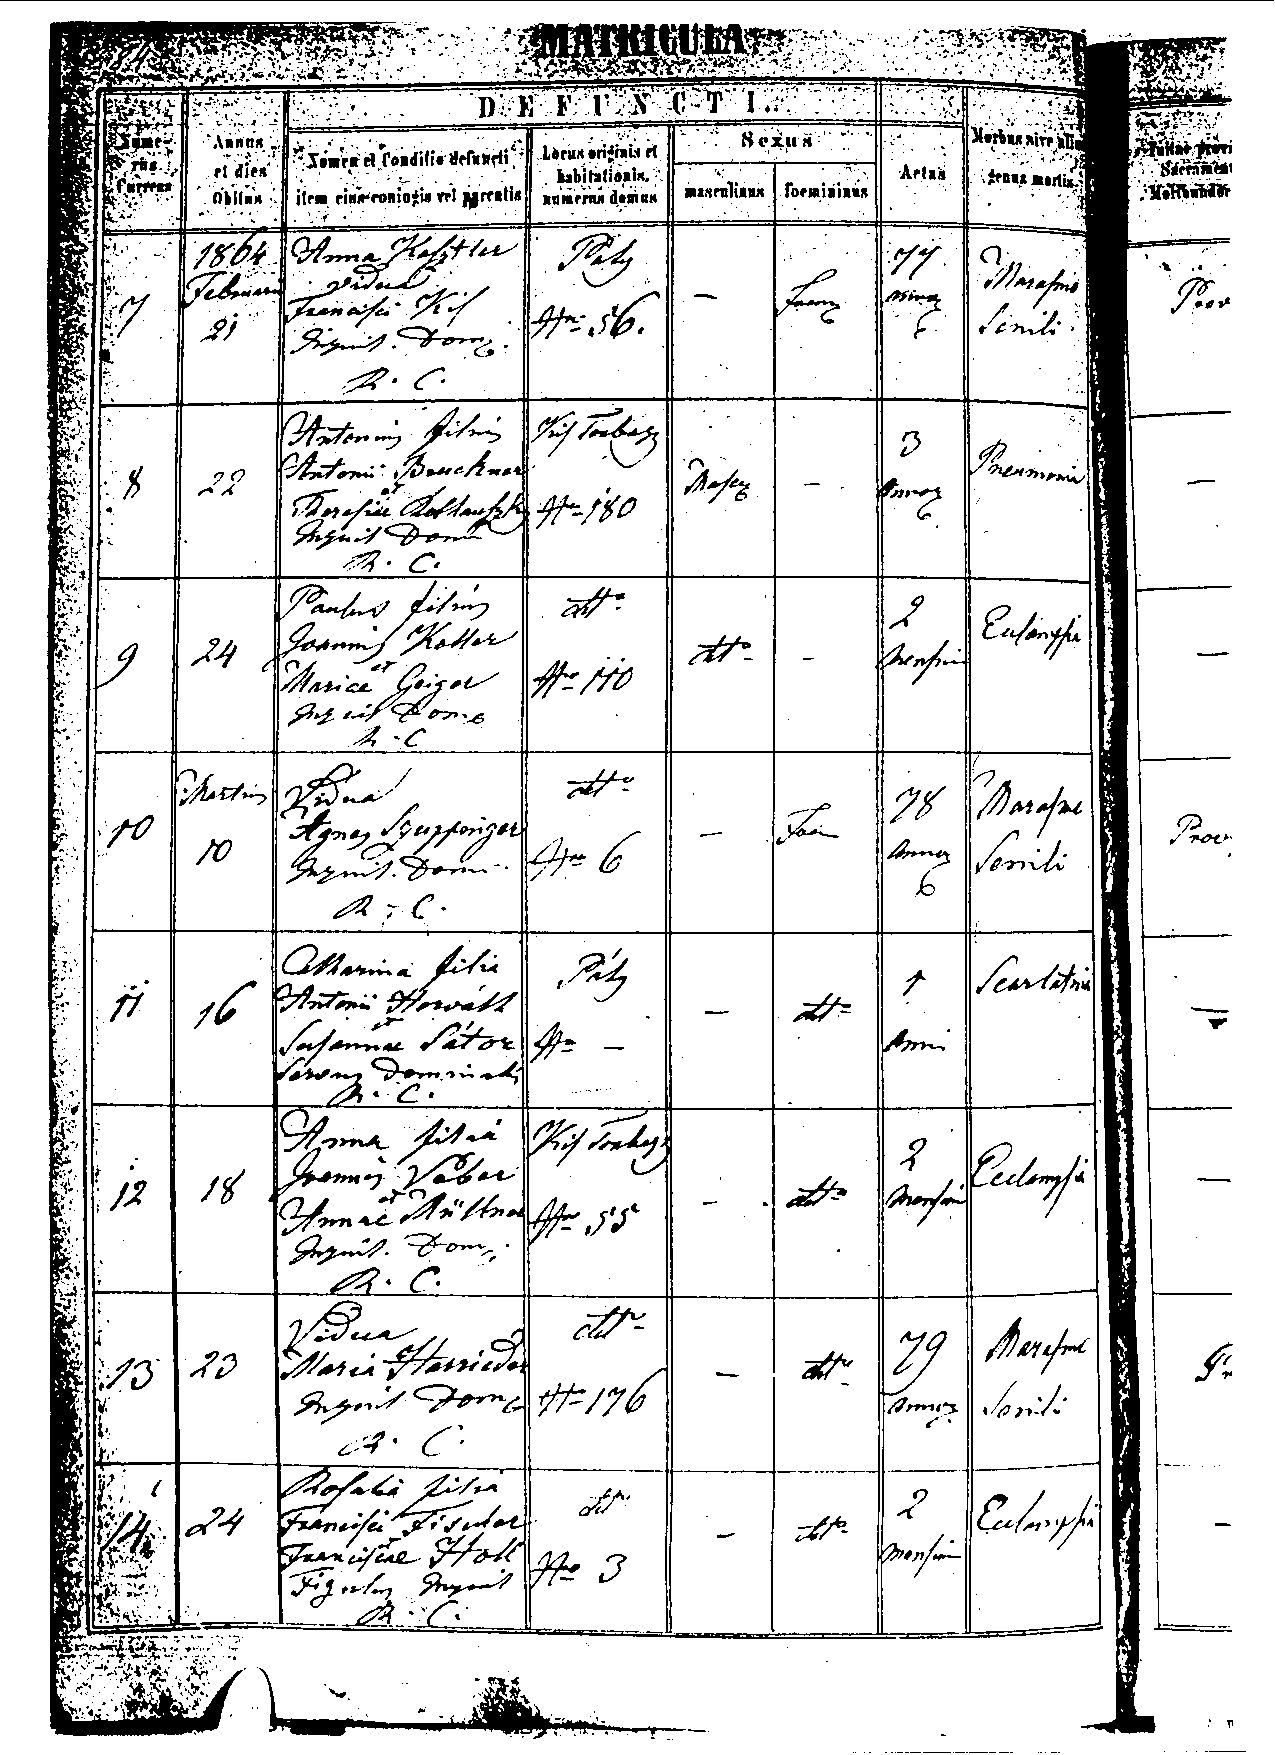 MATRICULA
DEFUNCTI.
Numerus Currens
Annus et dies Obitus
Nomen et Conditio defuncti item eius coniugis vel parentis
Locus originis et habitationis, numerus domus
Sexus
masculinus
foemininus
Aetas
Morbus sive aliud genus mortis
7
1864
Februarii
21
Anna
Vidua
Francisci Kis
Inquil. Dom.
R. C.
Páty
Nro 56.
—
Foem
77
annor
Marasmo
Senili.
Prov
8
22
Antonius filius
Antonii Bruckner
et
Theresiae
Inquil Dom
R. C.
Kis Torbágy
Nro 180
Masc
—
3
Annor
Pneumonia
—
9
24
Paulus filius
Joannis Koller
et
Mariae Geiger
Inquil Dom
R. C
dtto
Nro 110
dtto
—
2
Mensium
Eclampsia
—
10
Martius
10
Vidua
Agnes
Inquil. Dom
R. C.
dtto
Nro 6
—
Foem
78
Annor
Marasmo
Senili
Prov
11
16
Catharina filia
Antonii Horváth
et
Susannae Sátor
Dominalis
R. C.
Páty
Nro —
—
dtto
1
Anni
Scarlatina
—
12
18
Anna filia
Joannis Veber
et
Annae Müllner
Inquil. Dom.
R. C.
Kis Torbágy
Nro 55
—
dtto
2
Mensium
Eclampsia
—
13
23
Vidua
Maria Harrieder
Inquil Dom
R. C.
dtto
Nro 176
—
dtto
79
Annor
Marasmo
Senili
14
24
Rosalia filia
Francisci Fischer
et
Franciscae Holl
Figulus Inquil
R. C.
dtto
Nro 3
—
dtto
2
Mensium
Eclampsia
—